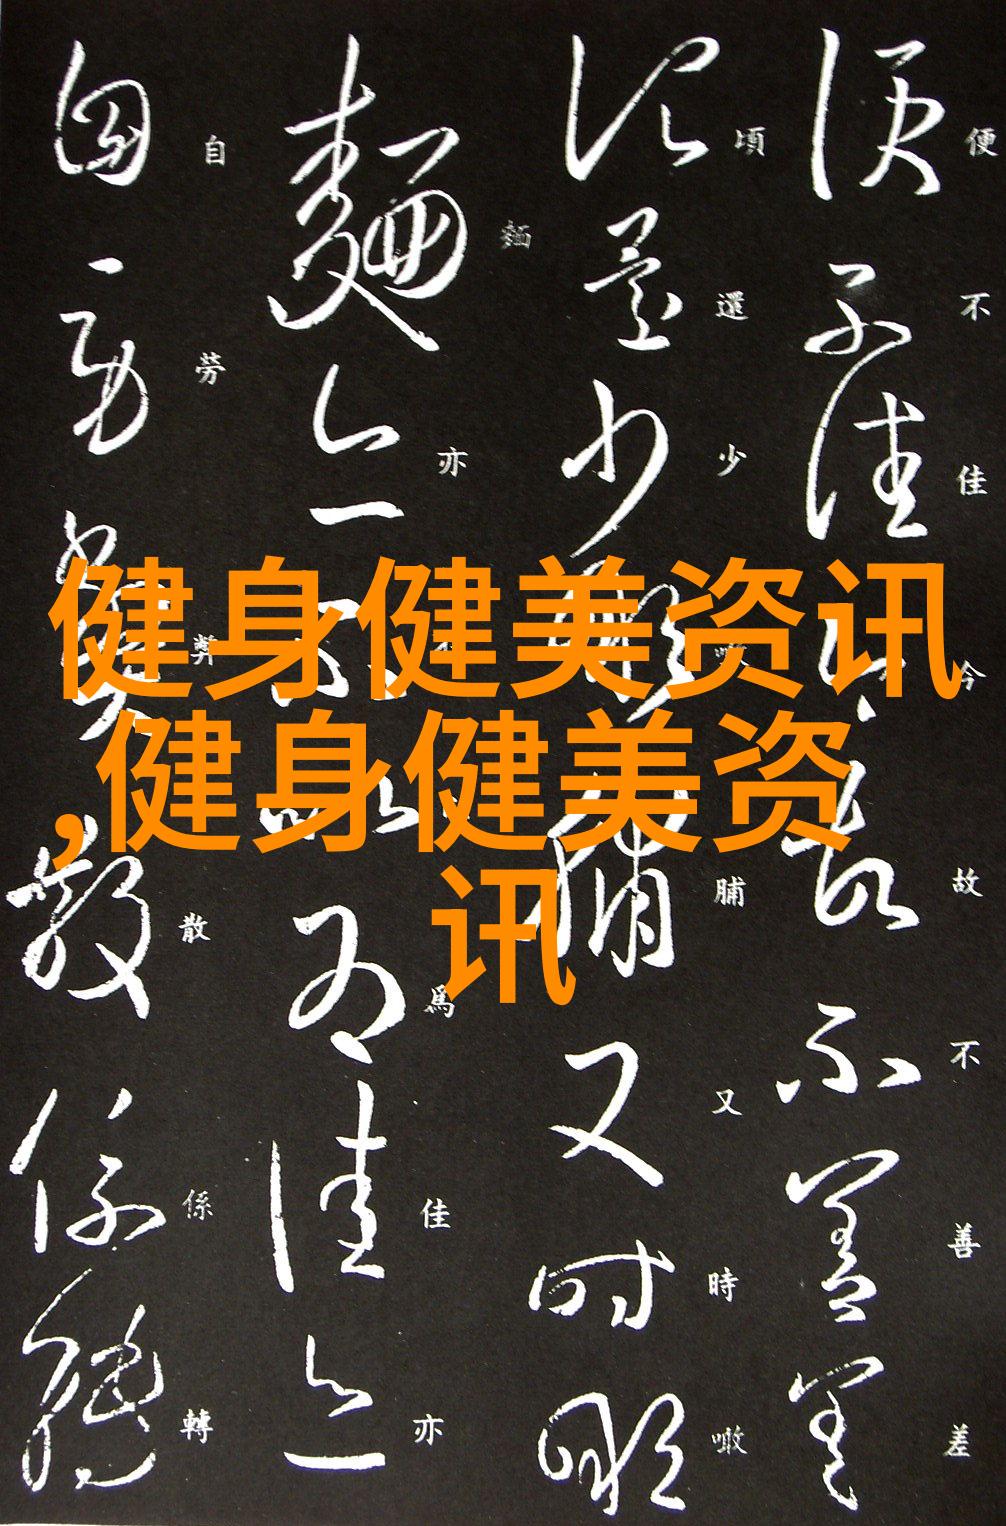 便不佳今故不善差
頃還少噉脯又時噉
麵亦不以爲佳亦
自勞弊散係轉
健身健美资讯
,健身健美资
讯